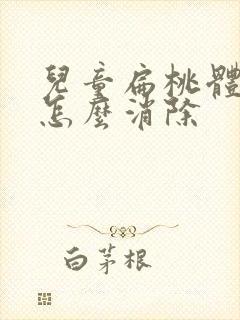 兒童扁桃體
怎麼消除
白茅根